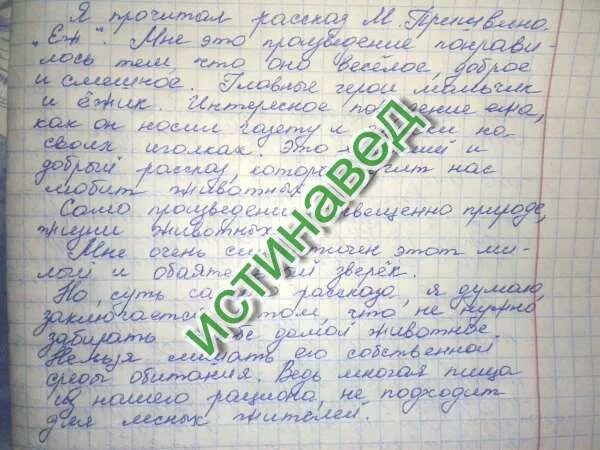 Я прочитал рассказ М. Пришвина.
"Ёж". Мне это произведение понрави-
лось тем, что оно весёлое, доброе
и смешное. Главные герои мальчик
и ёжик. Интересное ежа,
как он носил газету и на
своих иголках. Это и
добрый рассказ, нас
любить животных
Само природе,
жизни животных
Мне очень этот ми-
лый и зверёк.
Но, суть рассказа, я думаю,
заключается том, что не нужно
забирать домой животное.
Нельзя его собственной
среды обитания. Ведь многая пища
из нашего рациона, не подходит
для лесных жителей.
ИСТИНАВЕД